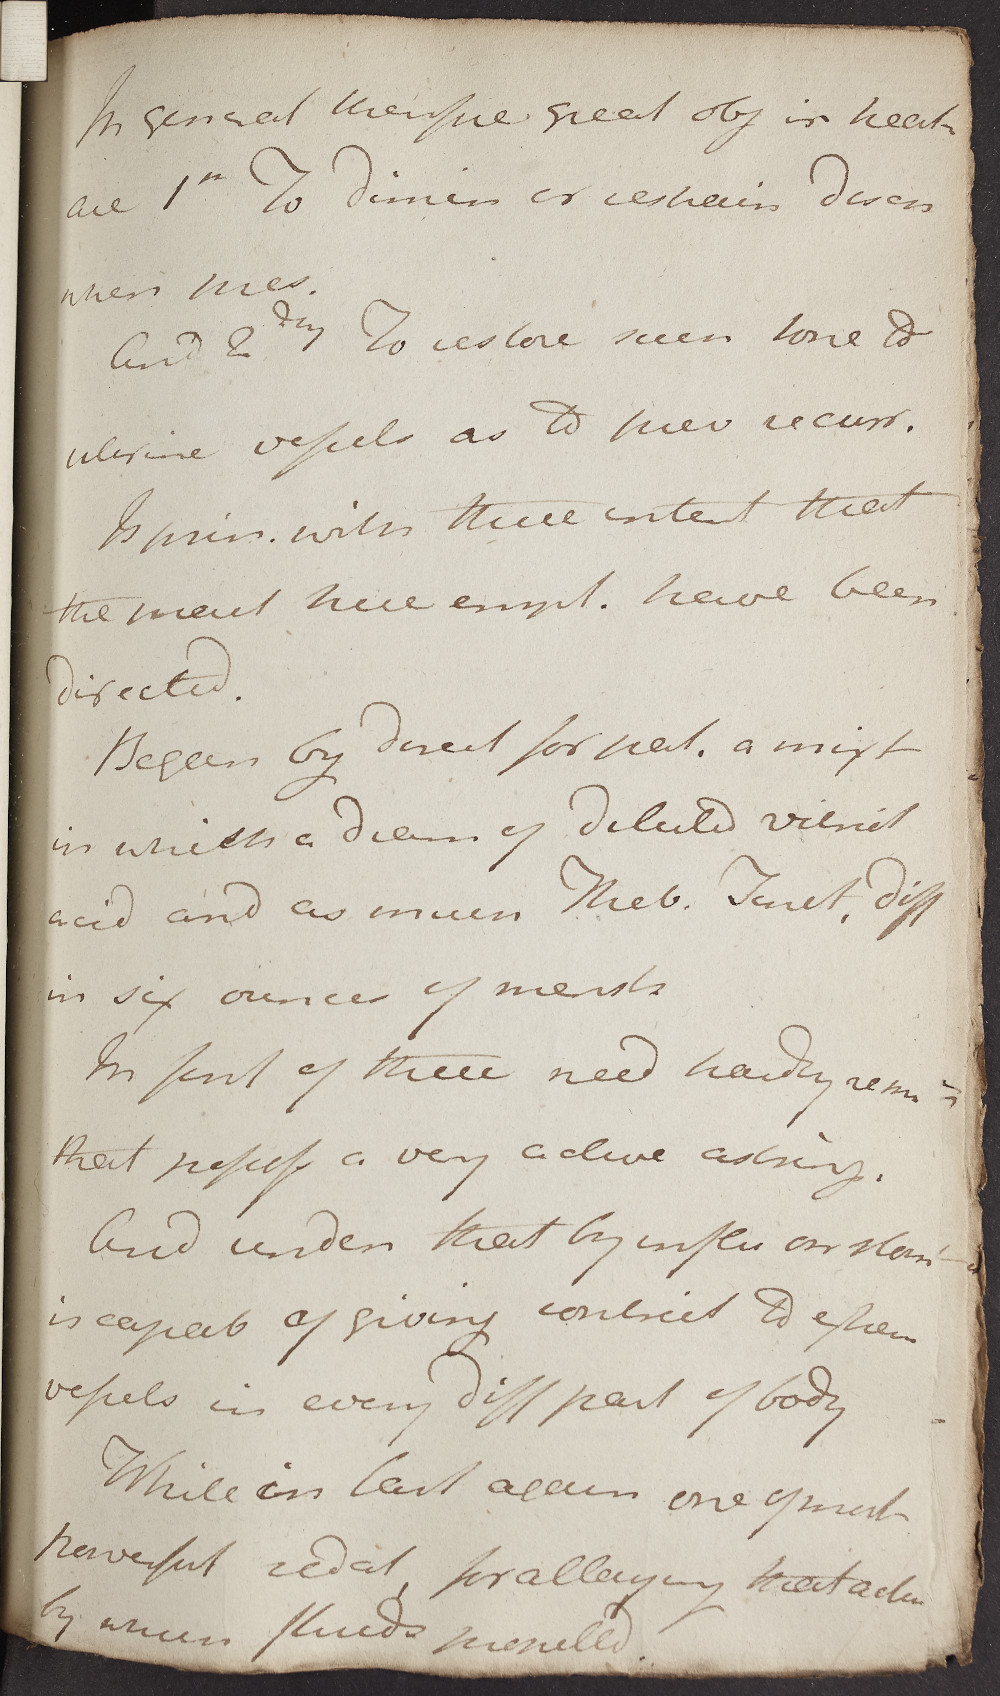 In general therefore great obj in treat
are 1st To dimin or restrain disch
when pres.
And 2dly To restore such tone to
uterine vessels as to prev recurr.
Is prin. with these intent that
the meas here empl. have been
directed.
Began by direct for pat. a mixt
in which a dram of diluted vitriol
acid and as much Theb. Tinct, diff
in six ounces of menst
In first of these need hardly rem
that possess a very active astring.
And under that by influ on stom
is capab of giving constrict to extrem
vessels in every diff part of body
While in last again one of most
powerful sedat, for allaying that action
by which fluids propelled.